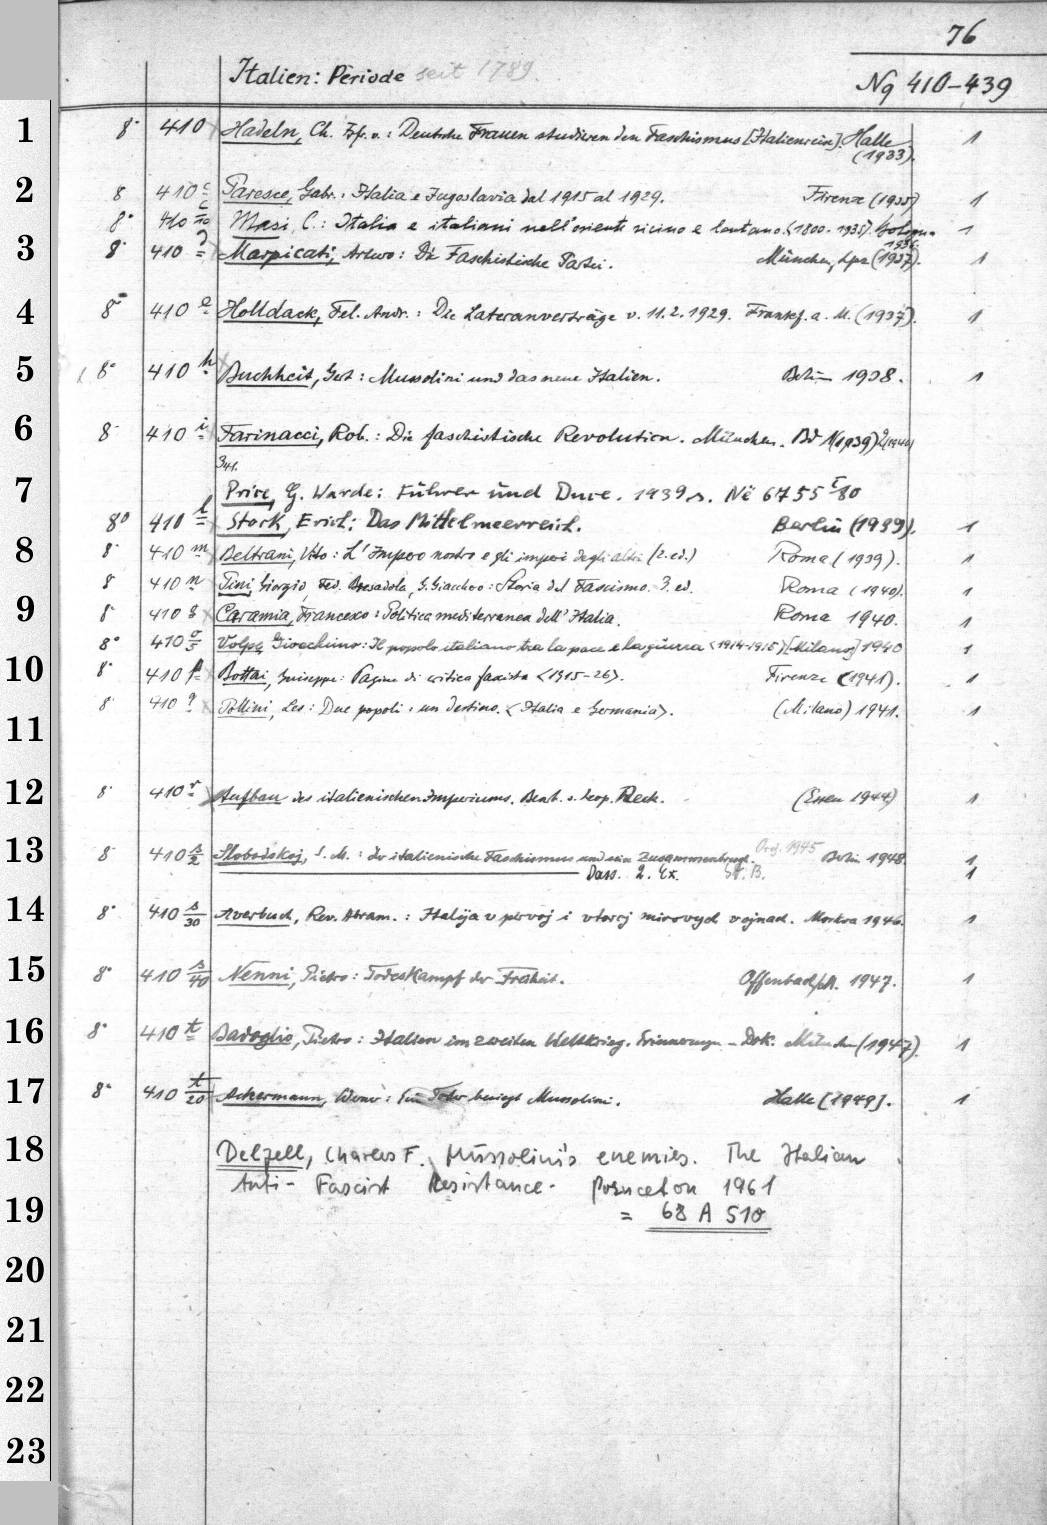 76
Italien: Periode seit 1789.
Nq 410-439
1 8° 410 Hadeln, Ch. Frfr. v.: Deutsche Frauen studieren den Faschismus [Italienreise]. Halle 1
(1933).
2 8 410 c Paresce, Gabr.: Italia e Jugoslavia dal 1915 al 1929. Firenze (1935) 1
8° 410 c/20 Masi, C.: Italia e italiani nell'oriente vicino e lontano. (1800-1935). Bologna 1
1936.
3 8° 410 Marpicati, Arturo: Die Faschistische Partei. München, Lpz (1937). 1
4 8° 410 e Holldack, Fel. Andr.: Die Lateranverträge v. 11.2.1929. Frankf. a. M. (1937). 1
5 8° 410 h Buchheit, Gert: Mussolini und das neue Italien. Berlin 1938. 1
6 8° 410 i Farinacci, Rob.: Die faschistische Revolution. München. Bd 1(1939) 2(1940)
341.
7 Price, G. Warde: Führer und Duce. 1939 s. Në 6755 I/80
8° 410 l Stock, Erich: Das Mittelmeerreich. Berlin (1939). 1
8 8° 410 m Beltrani, Vito: L'Impero nostro e gli imperi degli altri (2. ed.) Roma (1939). 1
8° 410 n Pini, Giorgio, Fed. Bresadola, G. Giacchero: Storia del Fascismo. 3. ed. Roma (1940). 1
9 8° 410 Caramia, Francesco: Politica mediterranea dell'Italia. Roma 1940. 1
8° 410 o/5 Volpe, Gioachino: Il popolo italiano tra la pace e la guerra <1914-1915> [Milano] 1940 1
10 8° 410 p Bottai, Giuseppe: Pagine di critica fascista <1915-26>. Firenze (1941). 1
8° 410 q Pollini, Leo: Due popoli, un destino. <Italia e Germania>. (Milano) 1941. 1
11
12 8° 410 r Aufbau des italienischen Imperiums. Bearb. v. Leop. Reck. (Essen 1944) 1
13 8° 410 s/2 Slobodskoj, S. M.: Der italienische Faschismus und sein Zusammenbruch. Orig. 1945 Berlin 1948 1
Dass. 2. Ex. St. B. 1
14 8° 410 s/30 Averbuch, Rev. Abram.: Italija v pervoj i vtoroj mirovych vojnach. Moskva 1946. 1
15 8° 410 s/40 Nenni, Pietro: Todeskampf der Freiheit. Offenbach/M. 1947. 1
16 8° 410 t Badoglio, Pietro: Italien im zweiten Weltkrieg. Erinnerungen - Dok. München (1947). 1
17 8° 410 t/20 Ackermann, Werner: Ein Toter besiegt Mussolini. Halle [1949]. 1
18 Delzell, Charles F. Mussolini's enemies. The Italian
Anti-Fascist Resistance. Princeton 1961
19 = 68 A 510
20
21
22
23